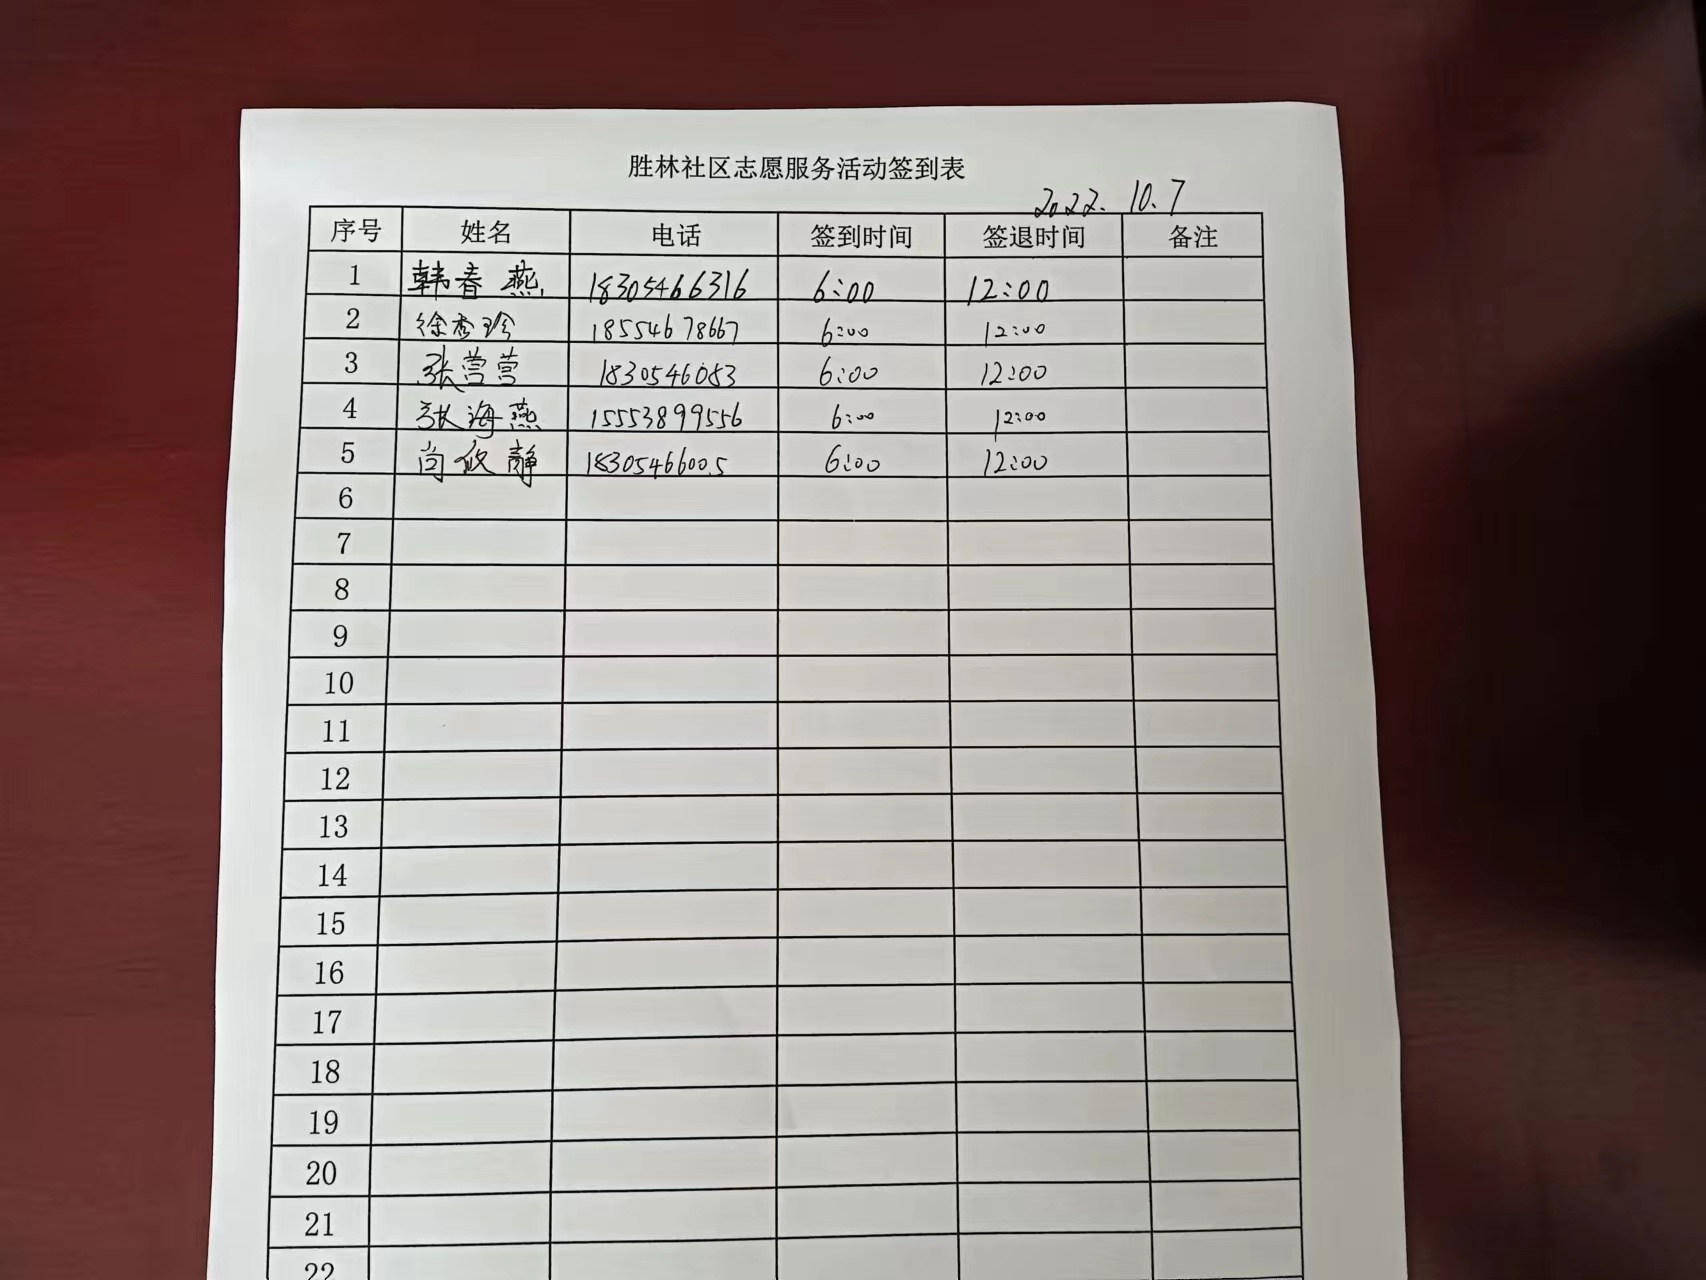 胜林社区志愿服务活动签到表
2022.10.7
序号 姓名 电话 签到时间 签退时间 备注
1 韩春燕 18305466316 6:00 12:00
2 徐秀珍 18554678667 6:00 12:00
3 张营营 1830546083 6:00 12:00
4 张海燕 15553899556 6:00 12:00
5 静 18305466005 6:00 12:00
6
7
8
9
10
11
12
13
14
15
16
17
18
19
20
21
22